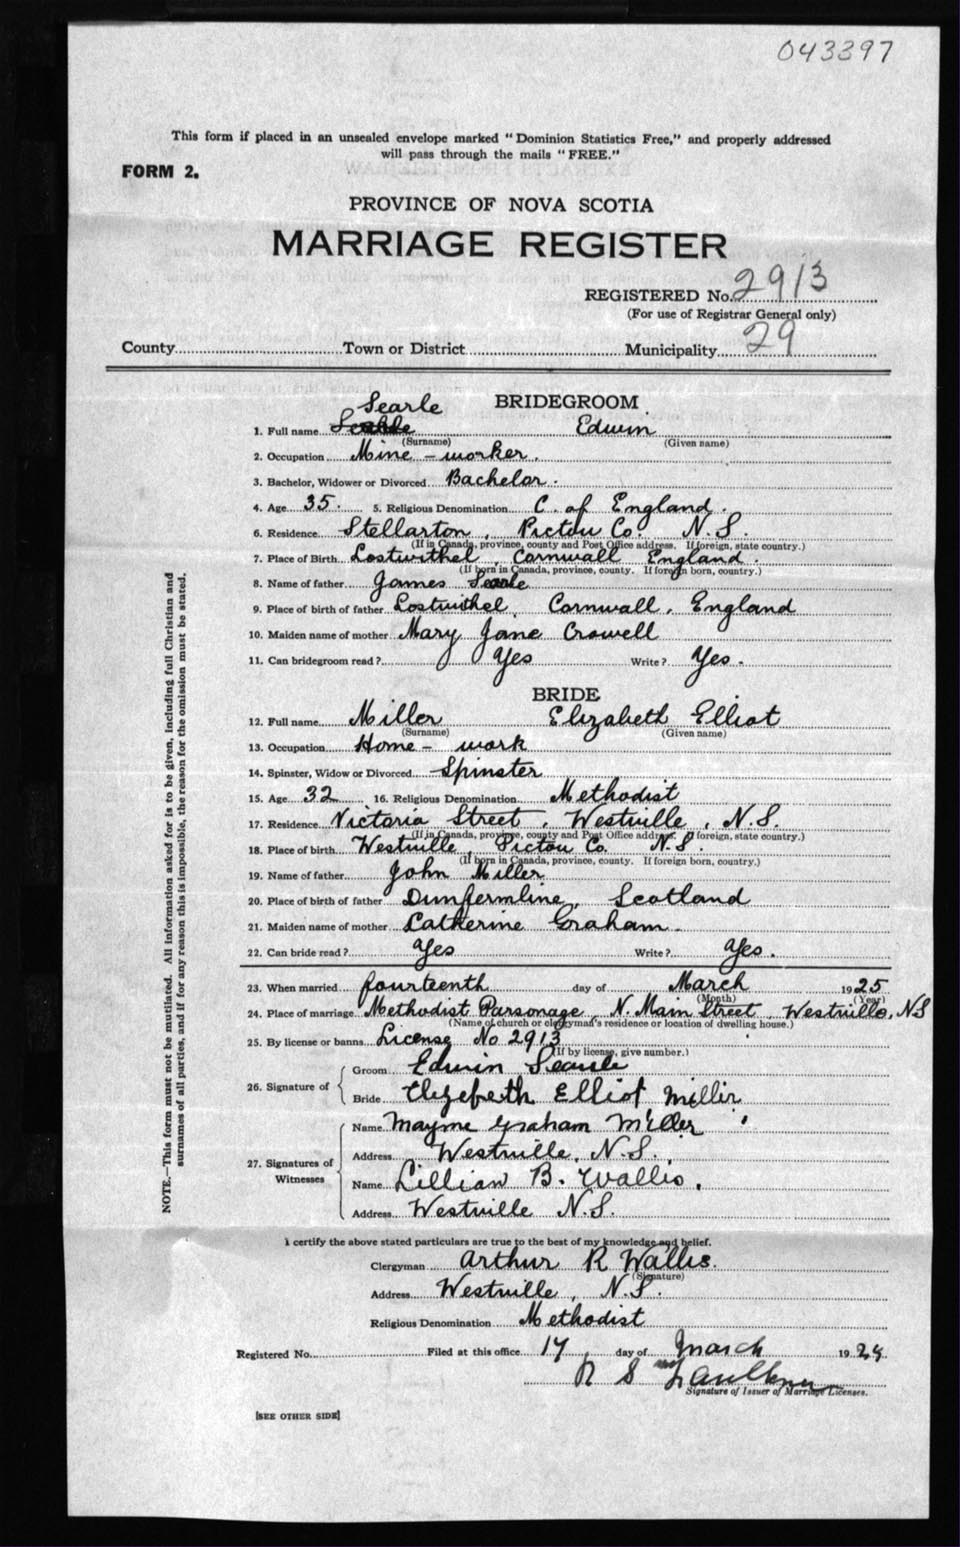 043397
This form if placed in an unsealed envelope marked "Dominion Statistics Free," and properly addressed
will pass through the mails "FREE."
FORM 2.
PROVINCE OF NOVA SCOTIA
MARRIAGE REGISTER
REGISTERED No. 2913
(For use of Registrar General only)
County Town or District Municipality 29
BRIDEGROOM
Searle
1. Full name Edwin
(Surname) (Given name)
2. Occupation Mine-worker.
3. Bachelor, Widower or Divorced Bachelor.
4. Age 35. 5. Religious Denomination C. of England.
6. Residence Stellarton, Pictou Co. N.S.
(If in Canada, province, county and Post Office address. If foreign, state country.)
7. Place of Birth Lostwithel, Cornwall England.
(If born in Canada, province, county. If foreign born, country.)
8. Name of father James Searle
9. Place of birth of father Lostwithel, Cornwall, England
10. Maiden name of mother Mary Jane Crowell
11. Can bridegroom read? Yes Write? Yes.
BRIDE
12. Full name Miller Elizabeth Elliot
(Surname) (Given name)
13. Occupation Home-work
14. Spinster, Widow or Divorced Spinster
15. Age 32 16. Religious Denomination Methodist
17. Residence Victoria Street, Westville, N.S.
(If in Canada, province, county and Post Office address. If foreign, state country.)
18. Place of birth Westville, Pictou Co. N.S.
(If born in Canada, province, county. If foreign born, country.)
19. Name of father John Miller
20. Place of birth of father Dunfermline, Scotland
21. Maiden name of mother Catherine Graham
22. Can bride read? Yes Write? Yes.
23. When married fourteenth day of March 1925
(Month) (Year)
24. Place of marriage Methodist Parsonage, N. Main Street, Westville, NS
(Name of church or clergyman's residence or location of dwelling house.)
25. By license or banns License No 2913
(If by license, give number.)
26. Signature of
Groom Edwin Searle
Bride Elizebeth Elliot Miller
27. Signatures of Witnesses
Name Mayme Graham Miller
Address Westville, N.S.
Name Lillian B. Wallis.
Address Westville N.S.
I certify the above stated particulars are true to the best of my knowledge and belief.
Clergyman Arthur R Wallis.
(Signature)
Address Westville, N.S.
Religious Denomination Methodist
Registered No. Filed at this office 17 day of March 19
R S Faulkner
Signature of Issuer of Marriage Licenses.
[SEE OTHER SIDE]
NOTE.—This form must not be mutilated. All information asked for is to be given, including full Christian and
surnames of all parties, and if for any reason this is impossible, the reason for the omission must be stated.